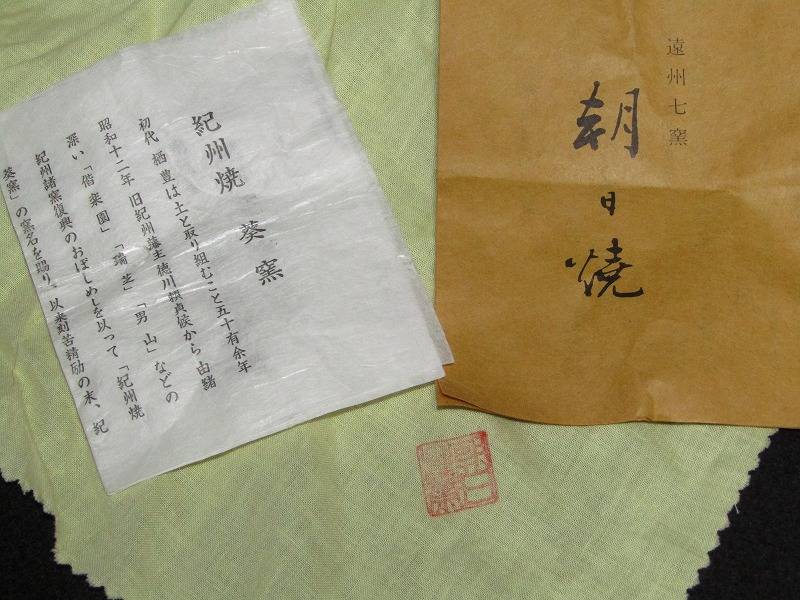 紀州焼 葵窯
初代 栖豊は土と取り組むこと五十有余年
昭和十二年 旧紀州藩主徳川頼貞候から由緒
深い「偕楽園」「瑞芝」「男山」などの
紀州諸窯復興のおぼしめしを以って「紀州焼
葵窯」の窯名を賜り。以来刻苦精励の末、紀
遠州七窯
朝日焼